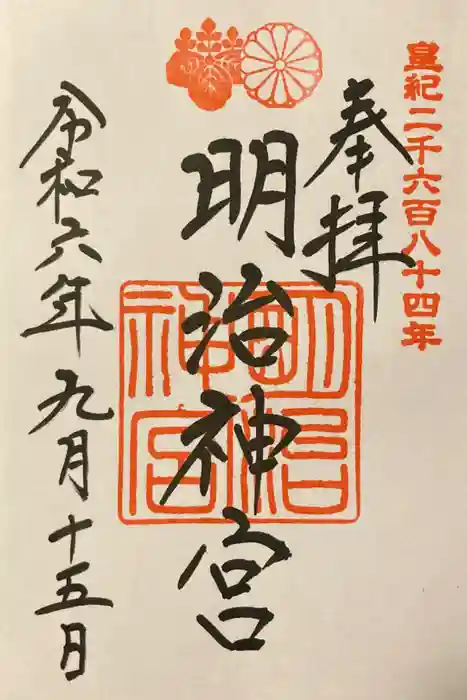 皇紀二千六百八十四年
奉拝
明治神宮
明治神宮
令和六年九月十五日